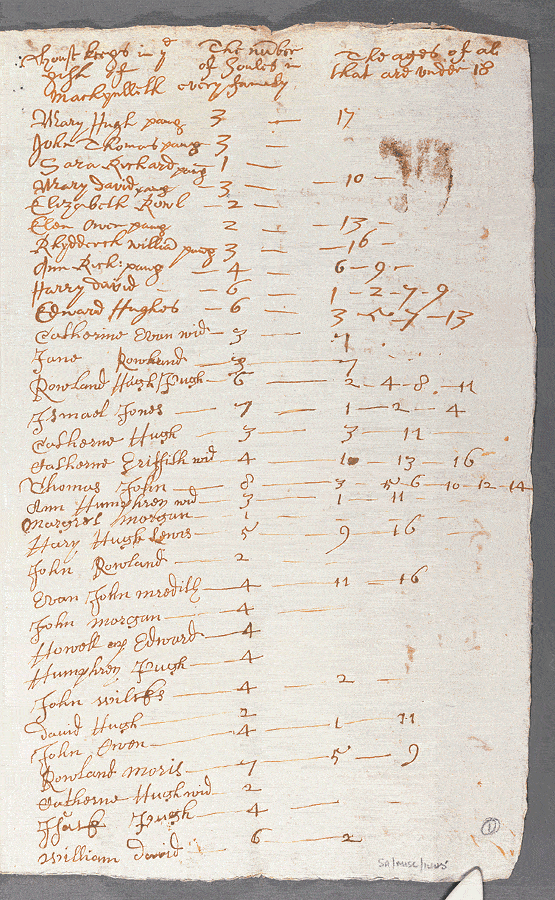 Housekeeps in ye The nuber The ages of al
pish of of Soules in that are under 18
Machynlleth every family
Mary Hugh paup 3 — 17
John Thomas paup 3 —
Sara Richard paup 1 —
Mary david paup 3 — — 10 —
Elizabeth Rowl — 2 —
Elen Owen paup 2 — — 13 —
Rhydderch william paup 3 — — 16 —
Ann Rich: paup — 4 — 6 — 9 —
Harry david — — 6 — 1 — 2 — 7 — 9
Edward Hughes — 6 — 3 — 5 — 7 — 13
Catherine Evan wid — 3 — 7
Jane Rowland — 3 — 7
Rowland Hugh Pugh — 6 — 2 — 4 — 8 — 11
Ismael Jones — 7 — 1 — 2 — 4
Catherne Hugh — 3 — 3 — 11 —
Catherne Griffith wid — 4 — 10 — 13 — 16
Thomas John — 8 — 3 — 5 — 6 — 10 — 12 — 14
Ann Humphrey wid — 3 — 1 — 11 —
Margret morgan — 1 —
Hary Hugh Lewis — 5 — 9 — 16 —
John Rowland — 2
Evan John meredith — 4 — 11 — 16
John morgan — 4 —
Howell ap Edward — 4
Humphrey Pugh — 4
John wilkes — 4 — 2 —
david Hugh — 2
John Owen — 4 — 1 — 11
Rowland moris — 7 — 5 — 9
Catherne Hugh wid 2
Pugh — 4 —
William david — 6 — 2
1
SA/MISC/